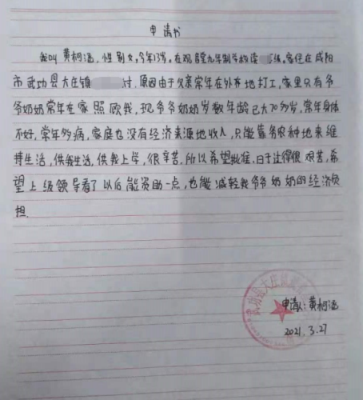 申请书
我叫黄柯涵，性别女，今年13岁，在观音堂九年制学校读 级，家住在咸阳
市武功县大庄镇 村。原因由于父亲常年在外地打工，家里只有爷
爷奶奶常年在家照顾我，现爷爷奶奶岁数年龄已大70多岁，常年身体
不好，常年多病，家庭也没有经济来源地收入，只能靠务农种地来维
持生活，供我生活，供我上学，很辛苦。所以希望批准，日子让得很艰苦，希
望上级领导看了以后能资助一点，也能减轻我爷爷奶奶的经济负
担
申请人：黄柯涵
2021.3.27